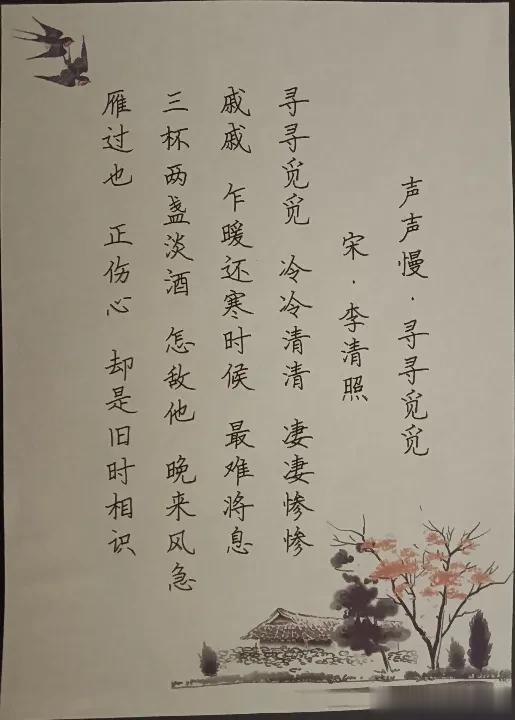 声声慢·寻寻觅觅
宋·李清照
寻寻觅觅 冷冷清清 凄凄惨惨
戚戚 乍暖还寒时候 最难将息
三杯两盏淡酒 怎敌他 晚来风急
雁过也 正伤心 却是旧时相识